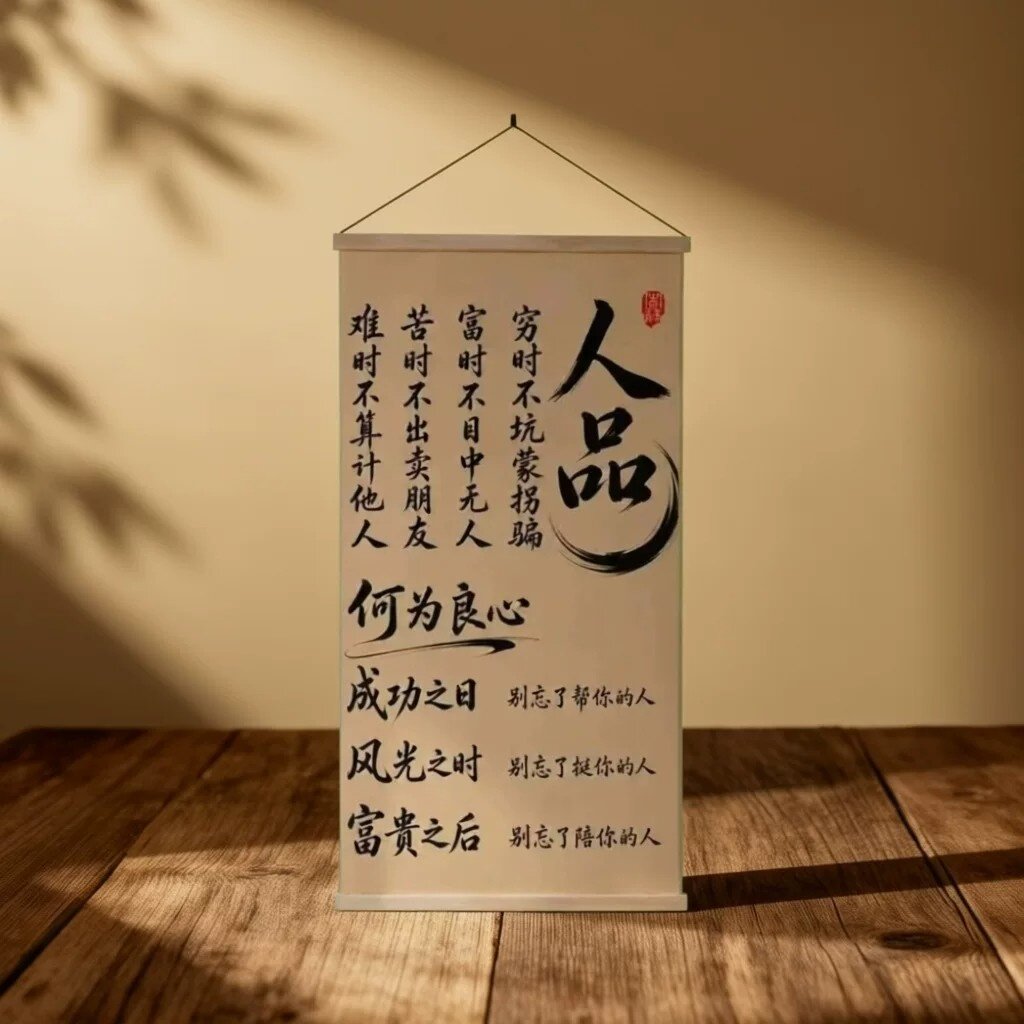 人品
穷时不坑蒙拐骗
富时不目中无人
苦时不出卖朋友
难时不算计他人
何为良心
成功之日 别忘了帮你的人
风光之时 别忘了挺你的人
富贵之后 别忘了陪你的人